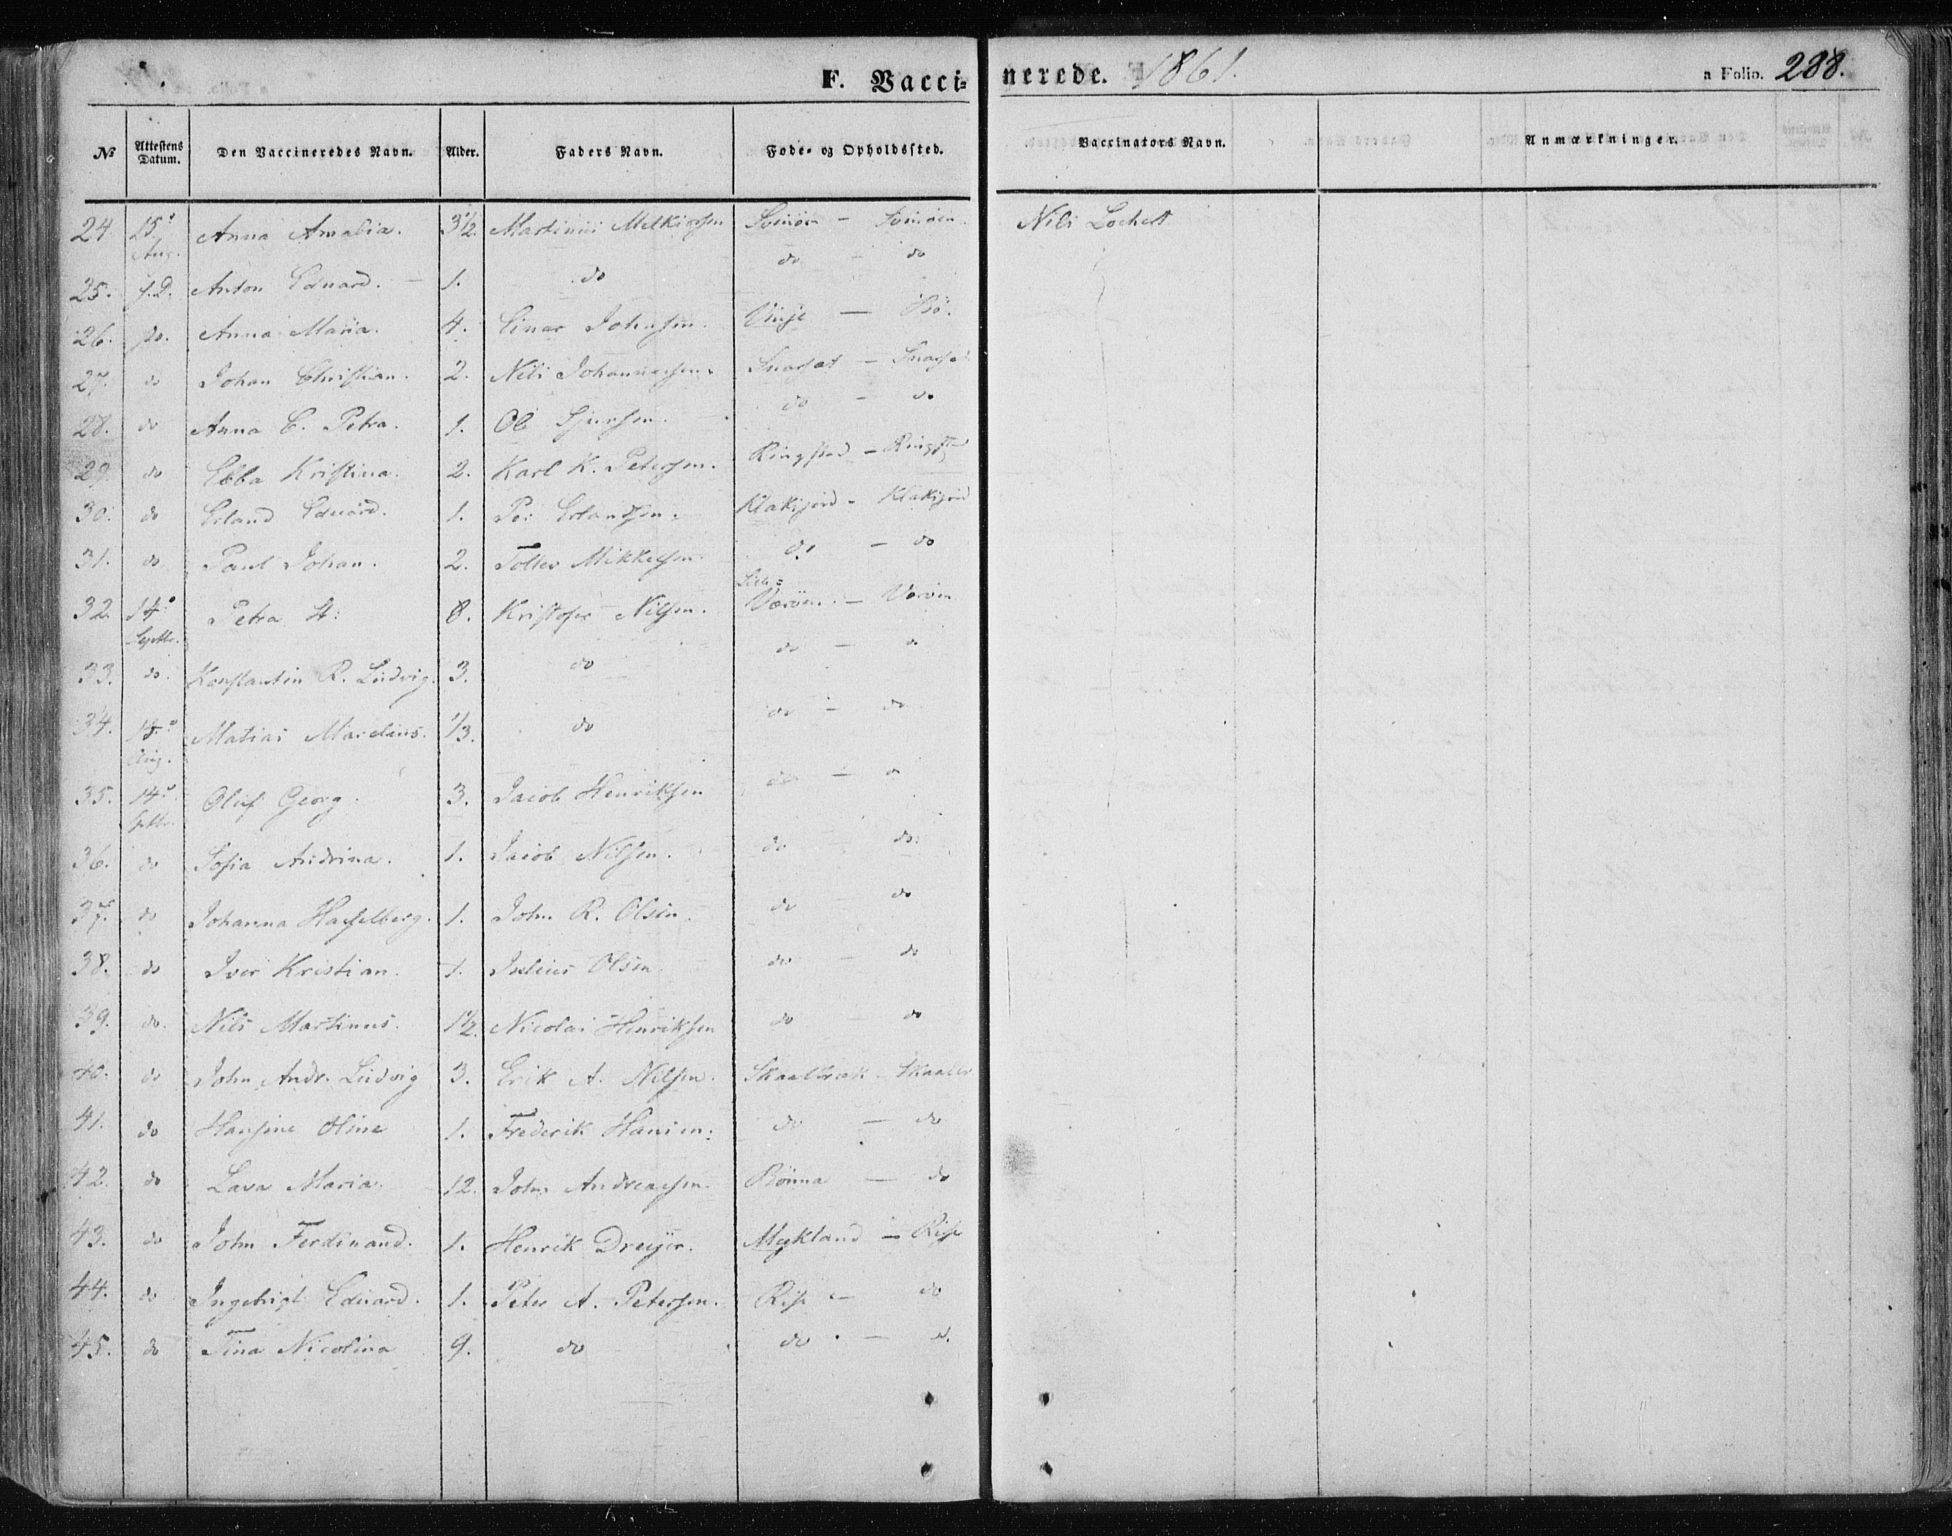 F. Vacci- nerede. 1861. a Folio. 288.
№ Attestens Datum. Den Vaccineredes Navn. Alder. Faders Navn. Føde- og Opholdssted. Vaccinators Navn. Anmærkninger.
24 15. Aug. Anna Amalia. 3½. Martinus Melkiorsen Svinöen - Svinöen. Nils Lochert
25. s.D. Anton Eduard. - 1. do do - do
26. do. Anna Maria. 4. Einar Johnsen. Vinje - Bö.
27. do Johan Christian. 2. Nils Johannesen. Snarset - Snarset
28. do Anna C. Petra. 1. Ole Sjursen. do - do
29. do Ebba Kristina. 2. Karl K. Petersen. Ringstad - Ringstad
30. do Erland Eduard. 1. Per Erlandsen. Klakjord - Klakjord
31. do Paul Johan. 2. Tollev Mikkelsen. do - do
32. 14. Septbr. Petra H: 8. Kristofer Nilsen. Væröen. - Væröen
33. do. Konstantin R. Ludvig. 3. do do - do
34. Aug. Matias Marelius. 1/3. do do - do
35. 14. Septbr. Oluf Georg. 3. Jacob Henriksen do - do
36. do Sofia Andrina. 1. Jacob Nilsen. do do.
37. do Johanna Hasselberg. 1. John R. Olsen. do - do
38. do Iver Kristian. 1. Julius Olsen do - do
39. do. Nils Martinus. 1½. Nicolai Henriksen do - do
40. do John Andr. Ludvig 3. Erik A. Nilsen. Skaalbrek - Skaalbr
41. do Hansine Hine 1. Frederik Hansen. do - do
42. do Lava Maria. 12. John Andreassen. Bönna - do
43. do John Ferdinand. 1. Henrik Dreyer. Mykland - Risø
44. do Ingebrigt Eduard. 1. Peter A. Petersen. Risø - do
45. do Tina Nicolina 9. do do - d.